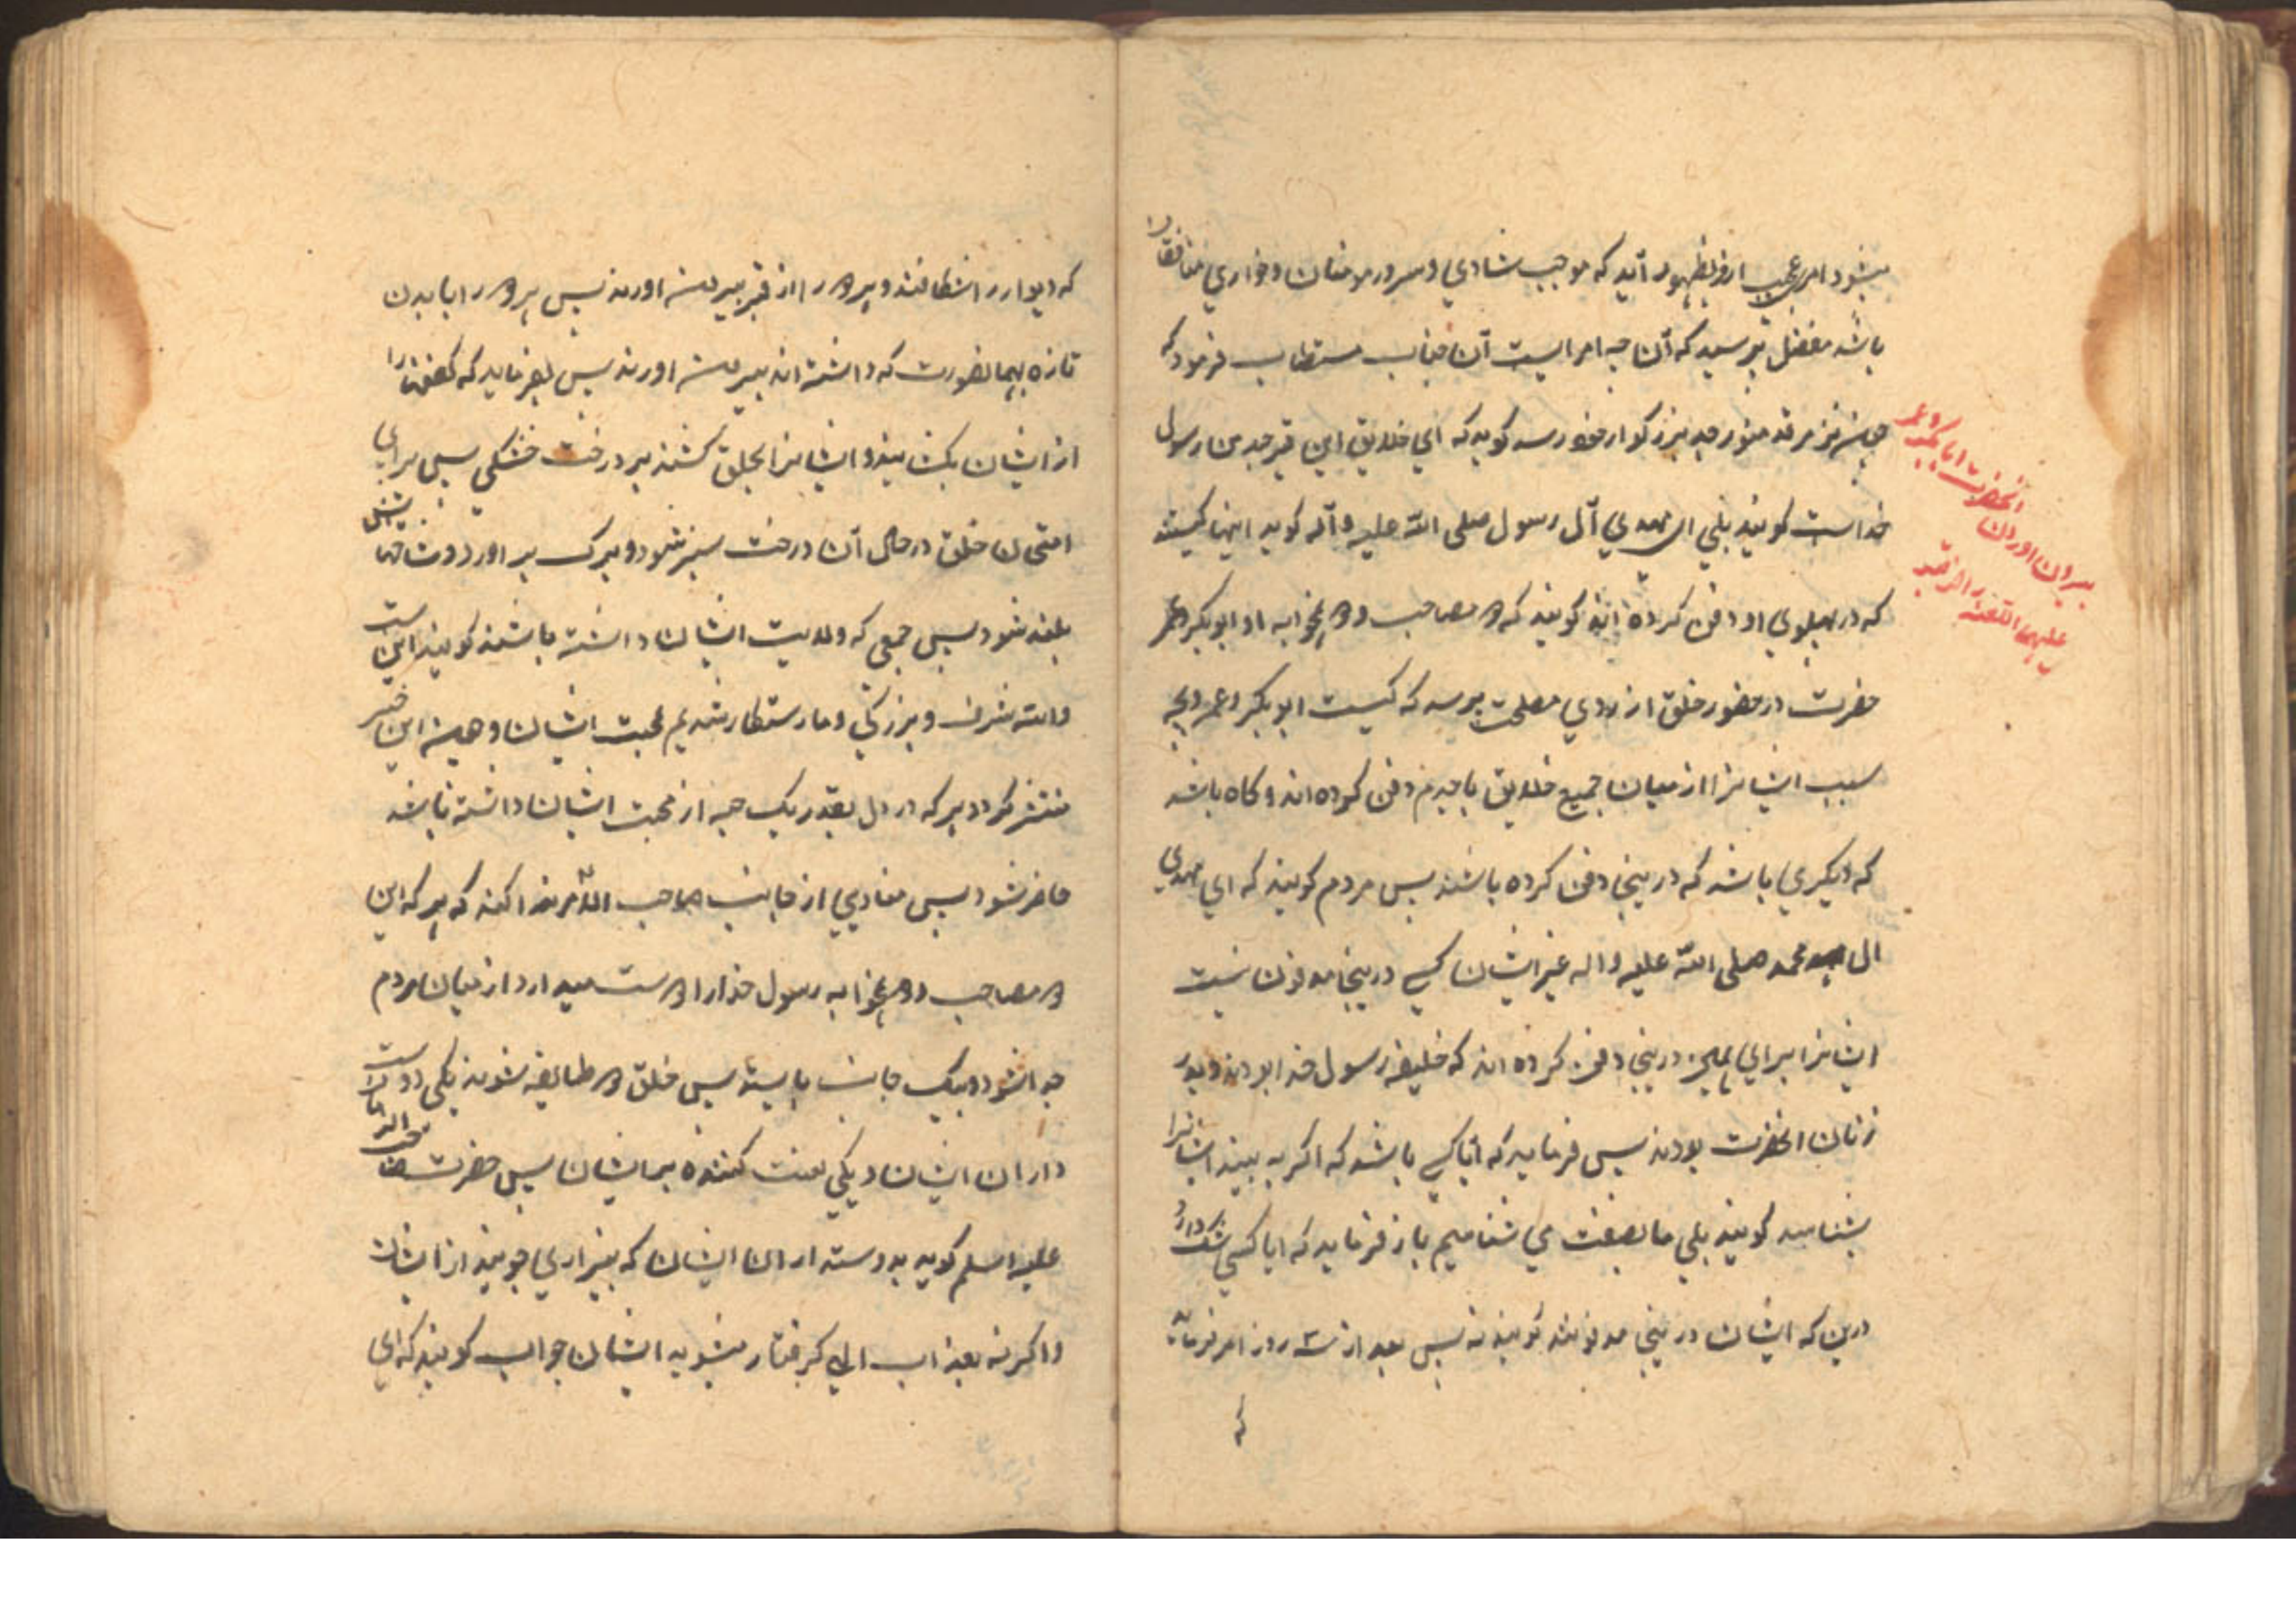 بشود امری عجیب ازو بظهور آید که موجب شادی و سرور مومنان و خواری منافقان
باشد مفضل پرسید که آن چه امر است آن جناب مستطاب فرمود که
چون بنزد مرقد منور جد بزرگوار خود رسد کوید که ای خلایق این قبر جد من رسول
خداست کویند بلی ای مهدی آل رسول صلی الله علیه و آله کوید اینها کیستند
که در پهلوی او دفن کرده اند کویند که دو مصاحب و دو همخوابه او ابوبکر و عمر
حضرت در حضور خلق از روی مصلحت پرسد که کیست ابوبکر و عمر و بچه
سبب ایشانرا از میان جمیع خلایق با جدم دفن کرده اند و کاه باشد
که دیکری باشد که درینجا دفن کرده باشند پس مردم کویند که ای مهدی
ال محمد صلی الله علیه و اله غیر ایشان کسی درینجا مدفون نیست
ایشانرا برای همین درینجا دفن کرده اند که خلیفه رسول خدا بودند و پدر
زنان انحضرت بودند پس فرماید که آیا کسی باشد که اکر به بیند ایشانرا
بشناسد کویند بلی ما بصفت می شناسیم باز فرماید که ایا کسی شک دارد
درین که ایشان درینجا مدفونند کویند نه پس بعد از سه روز امر فرماید
که
بیرون اوردن
انحضرت ابابکر و عمر
علیهما اللعنه را از قبر
که دیوار را بشکافند و هر دو را از قبر بیرون اورند پس هر دو را با بدن
تازه بهمانصورت که داشته اند بیرون اورند پس بفرماید که کفنها را
از ایشان بکشایند و ایشانرا بحلق کشند بر درخت خشکی پس برای
امتحان خلق در حال آن درخت سبز شود و برک بر اورد و شاخهایش
بلند شود پس جمعی که ولایت ایشان داشته باشند کویند این است
والله شرف و بزرکی و ما رستکار شدیم بمحبت ایشان و چون این خبر
منتشر کردد هر که در دل بقدر یک حبه از محبت ایشان داشته باشد
حاضر شود پس منادی از جانب صاحب الامر ندا کند که هر که این
دو مصاحب و دو همخوابه رسول خدا را دوست میدارد از میان مردم
جدا شود و بیک جانب بایستد پس خلق دو طایفه شوند یکی دوست
داران ایشان و یکی لعنت کننده بر ایشان پس حضرت صاحب الزمان
علیه السلم کوید بدوستداران ایشان که بیزاری جویند از ایشان
و اکرنه بعذاب الهی کرفتار میشوید ایشان جواب کویند که ای